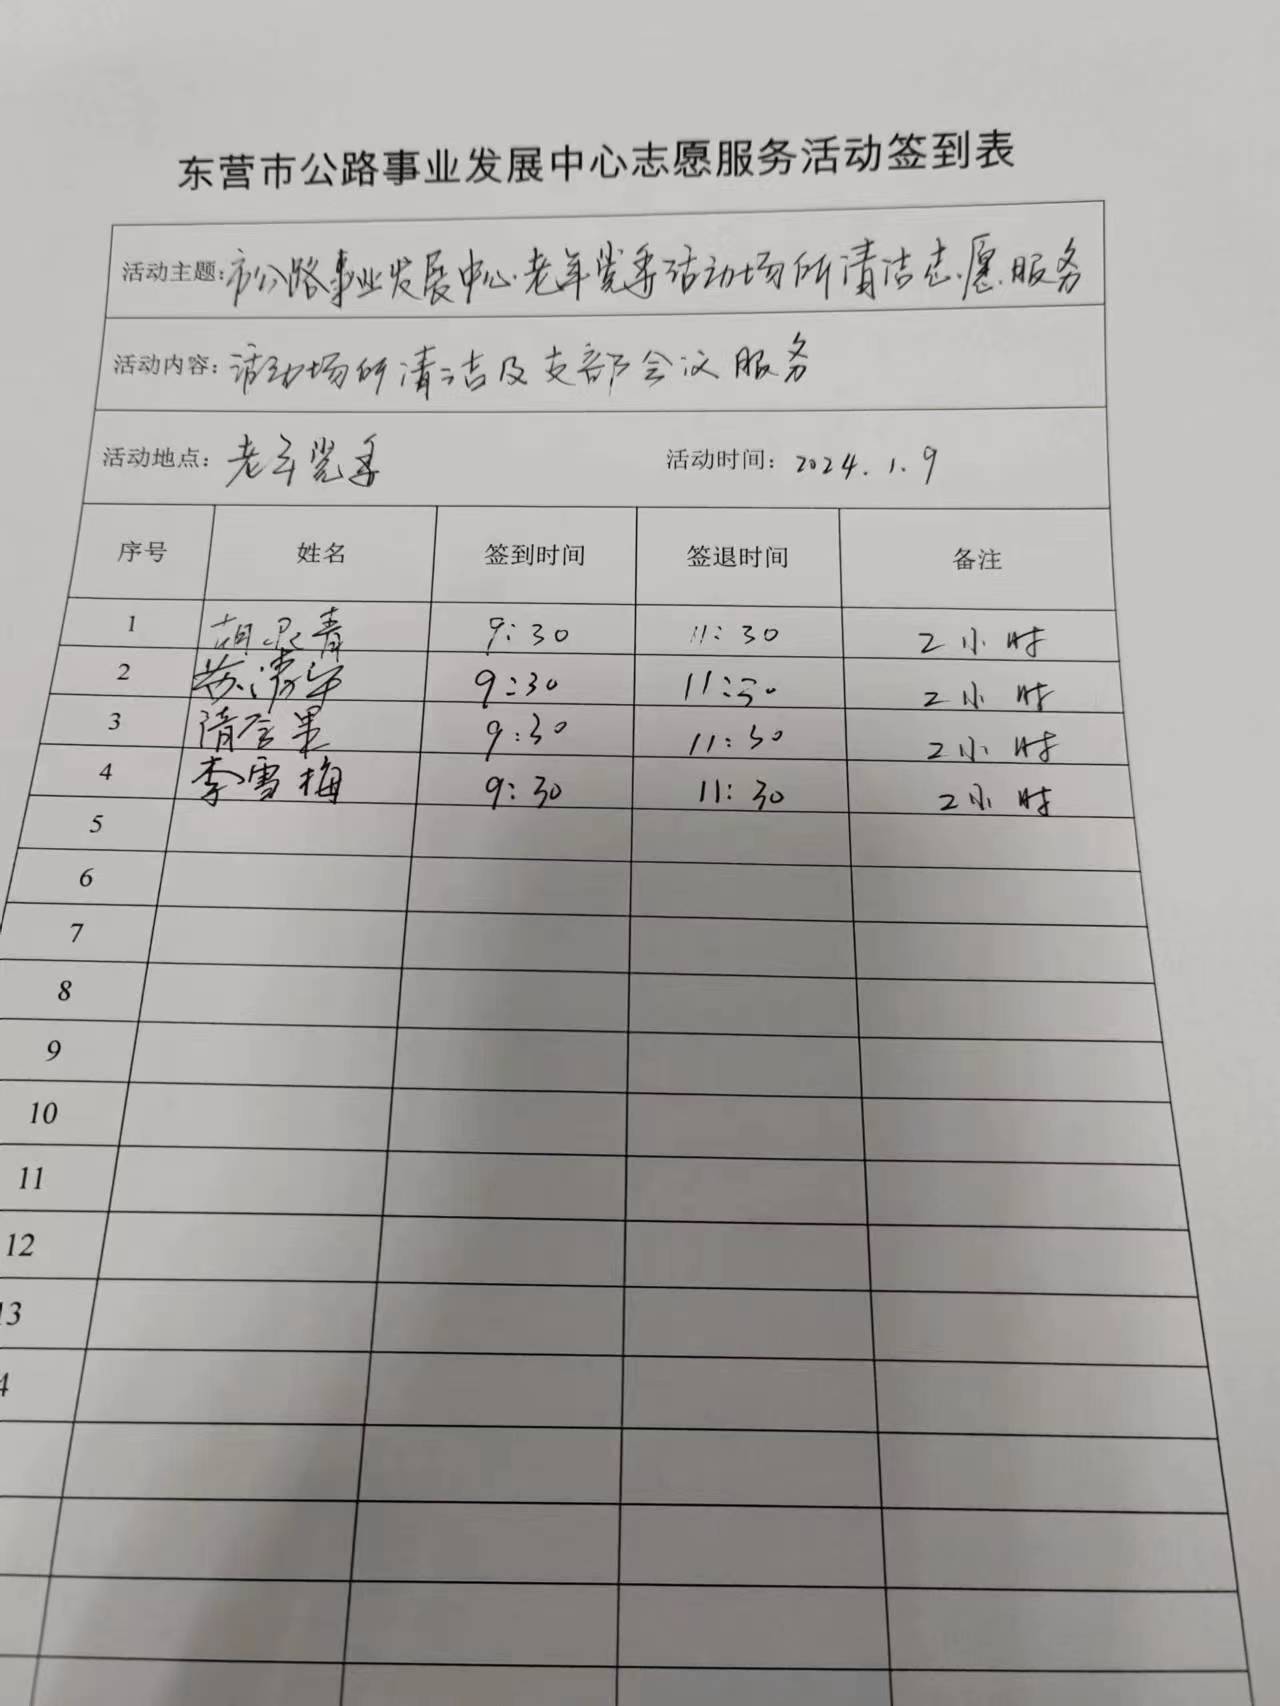 东营市公路事业发展中心志愿服务活动签到表
活动主题: 市公路事业发展中心老年党委活动场所清洁志愿服务
活动内容: 活动场所清洁及支部会议服务
活动地点: 老年党委 活动时间: 2024.1.9
序号 姓名 签到时间 签退时间 备注
1 胡 青 9:30 11:30 2小时
2 苏 9:30 11:30 2小时
3 隋 9:30 11:30 2小时
4 李雪梅 9:30 11:30 2小时
5
6
7
8
9
10
11
12
13
4